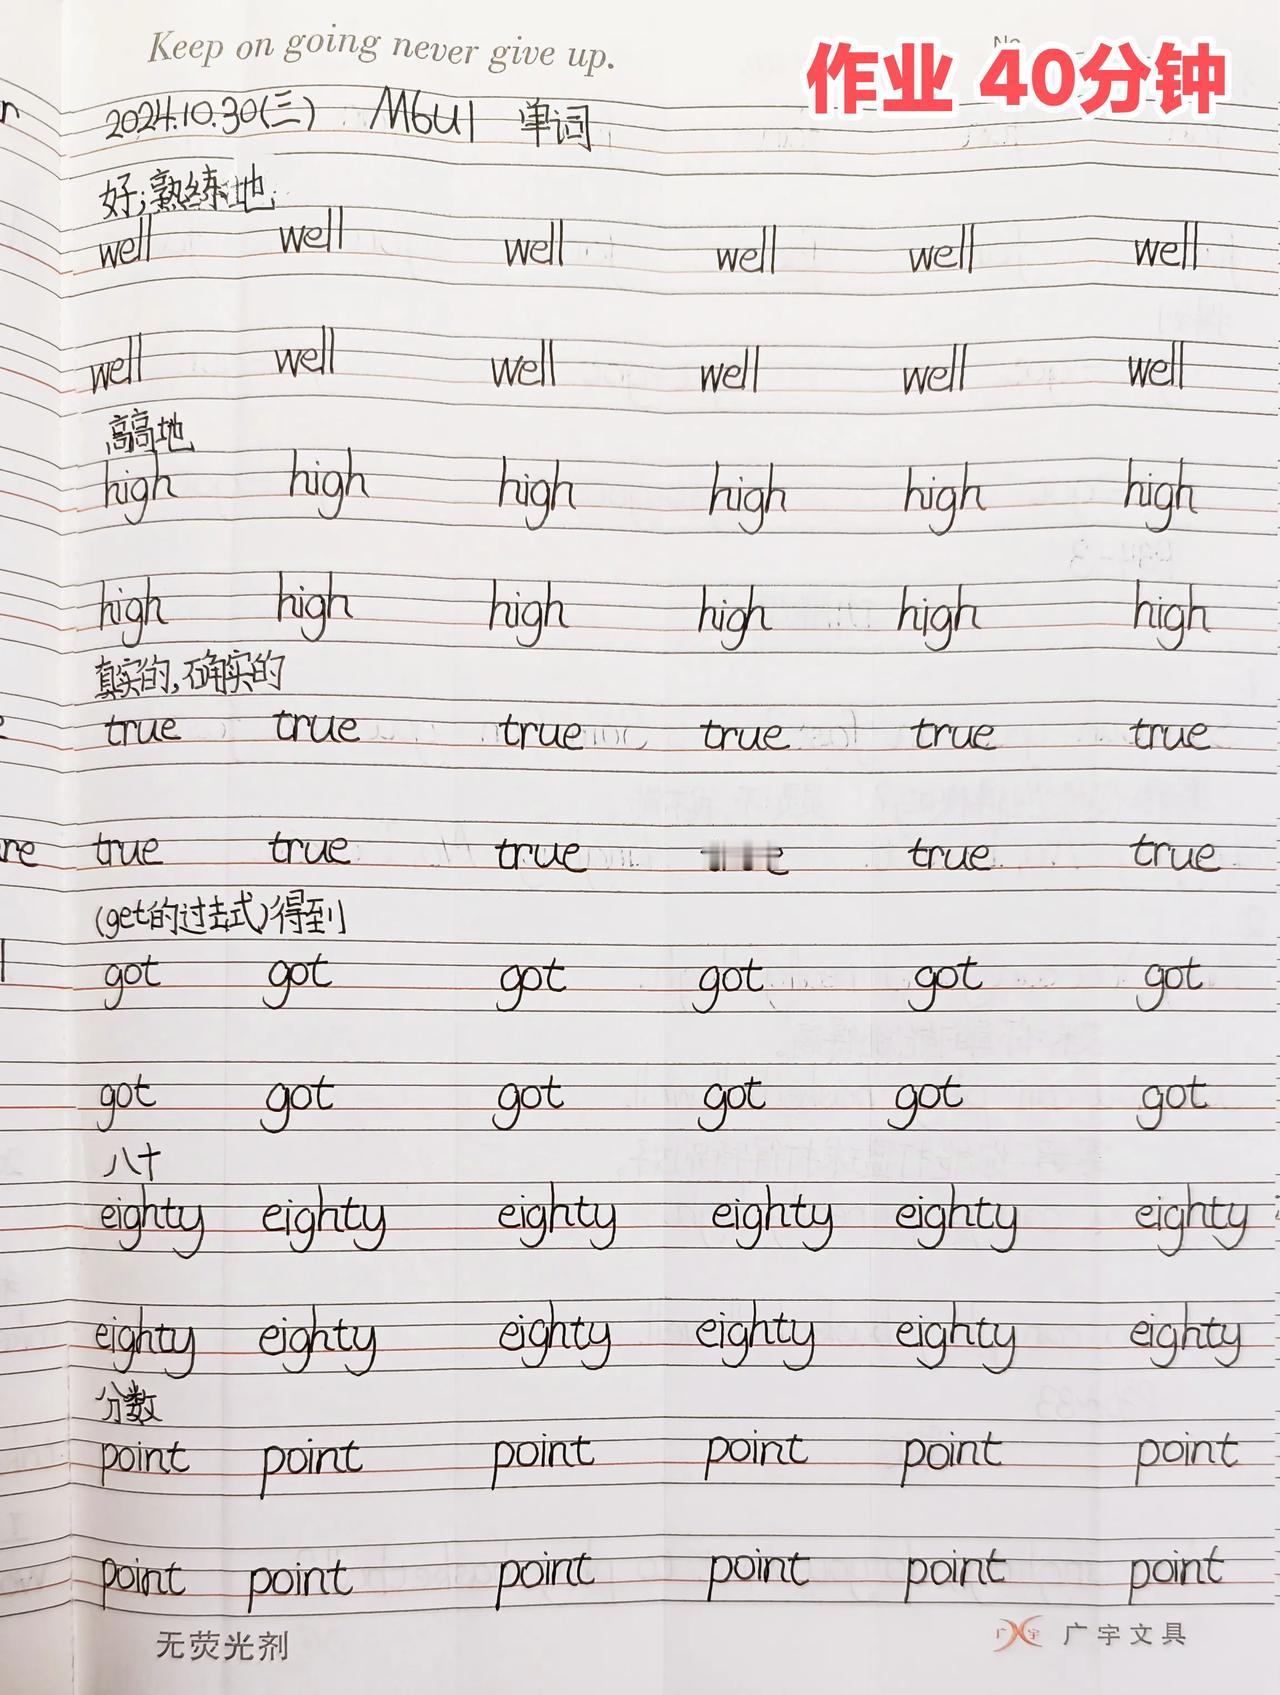 Keep on going never give up.
作业 40分钟
2024.10.30(三) M6U1 单词
好;熟练地
well well well well well well
well well well well well well
高高地
high high high high high high
high high high high high high
真实的,确实的
true true true true true true
true true true true true
(get的过去式)得到
got got got got got got
got got got got got got
八十
eighty eighty eighty eighty eighty eighty
eighty eighty eighty eighty eighty eighty
分数
point point point point point point
point point point point point point
无荧光剂 广宇文具